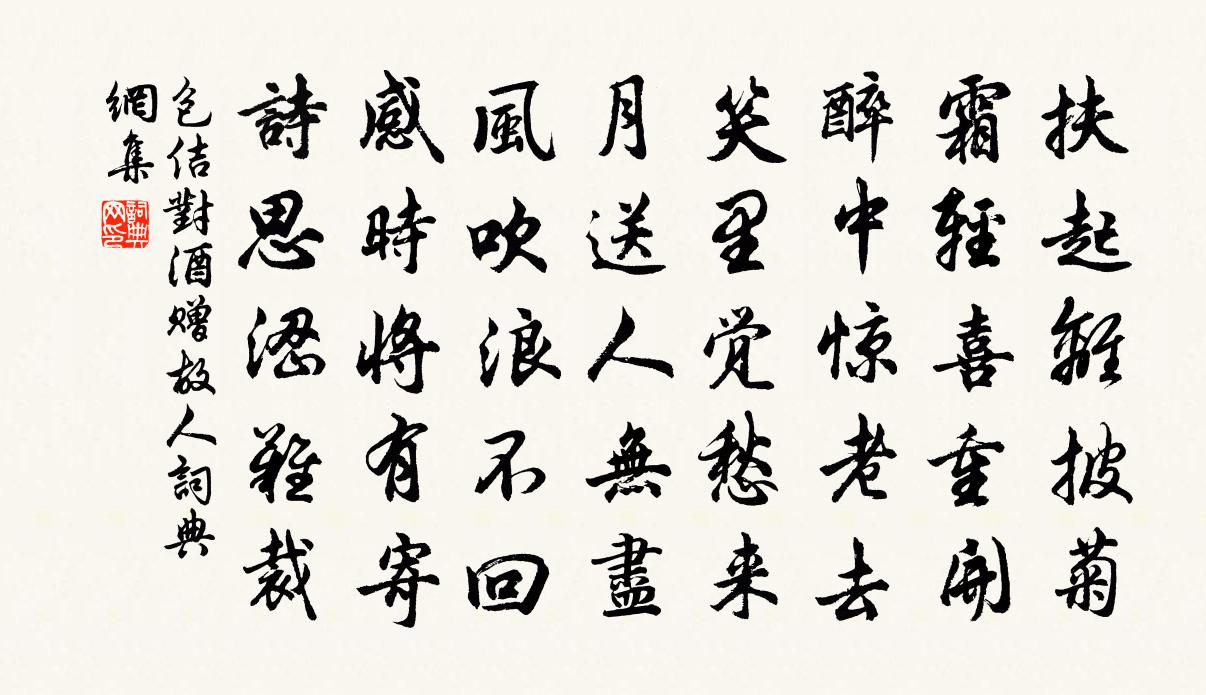 扶起離披菊
霜輕喜重開
醉中惊老去
笑里觉愁来
月送人無盡
風吹浪不回
感時將有寄
詩思澀難裁
包佶對酒赠故人詞典
網集
詞典
网印